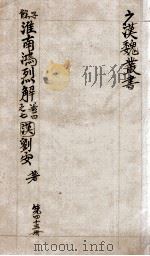 漢魏叢書
子餘
淮南鴻烈解 卷四之七 漢 劉安 著
第四十三冊